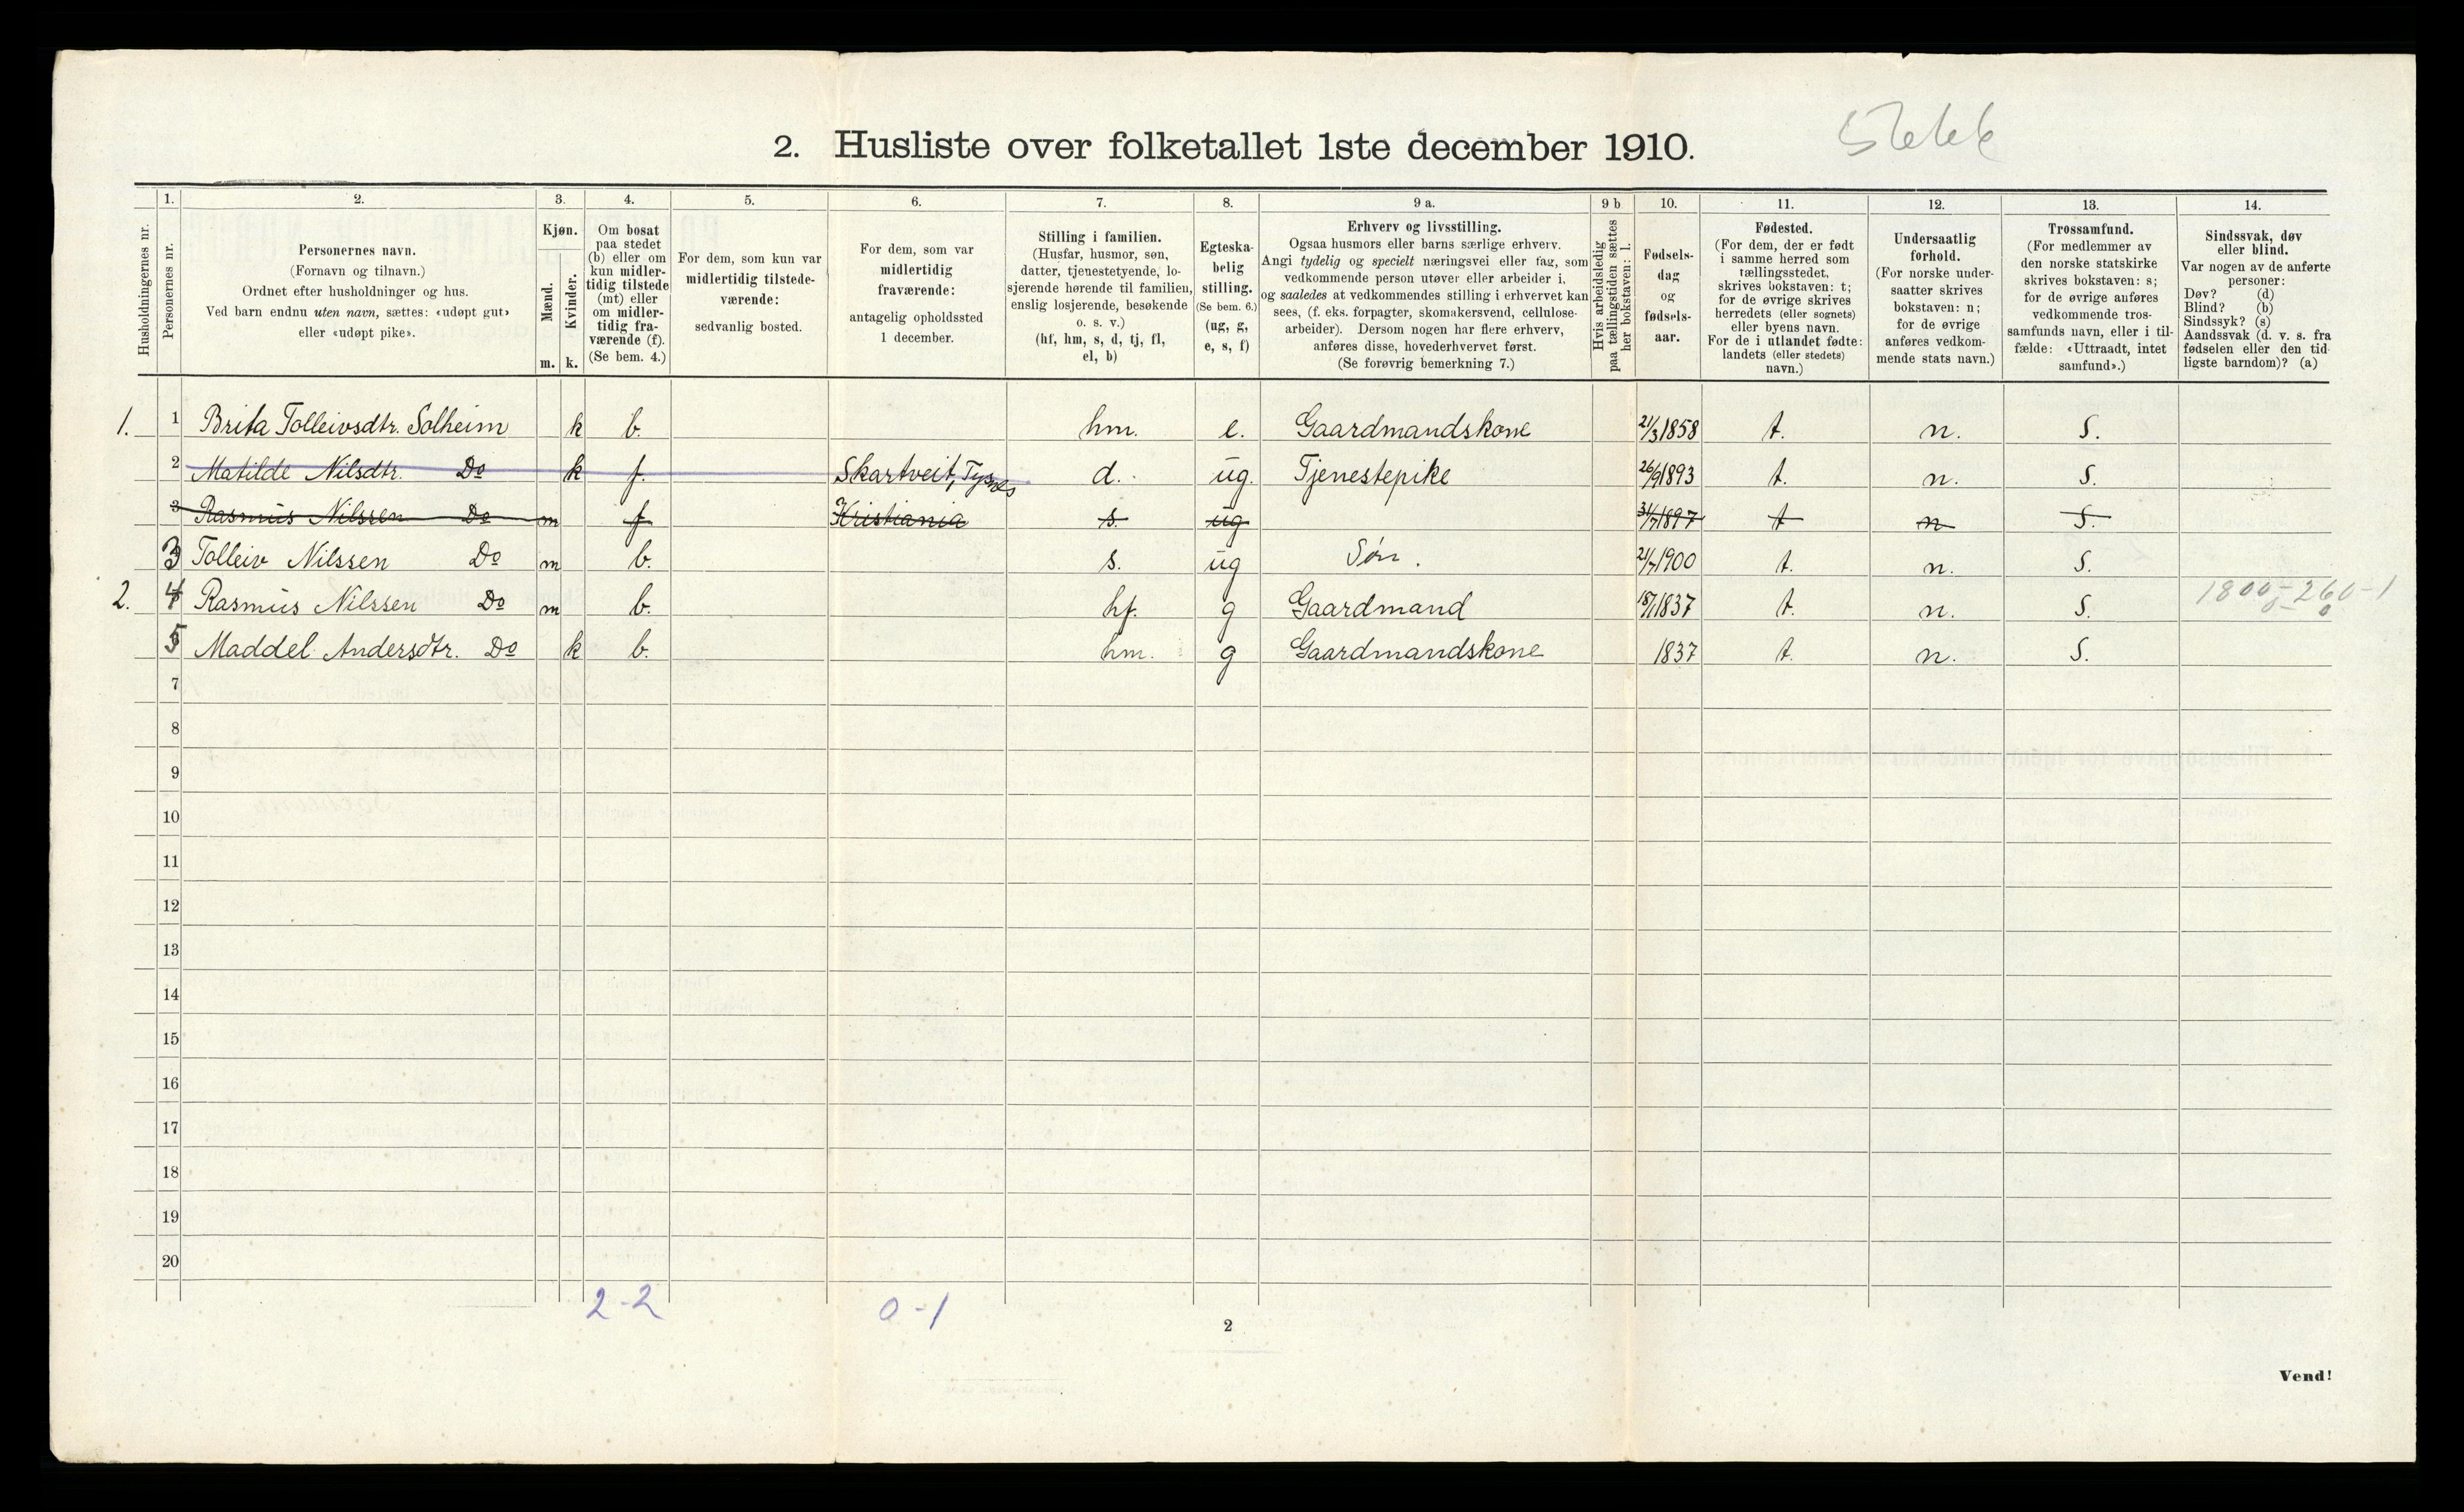 2. Husliste over folketallet 1ste december 1910.
Husholdningernes nr.
1.
Personernes nr.
2.
Personernes navn.
(Fornavn og tilnavn.)
Ordnet efter husholdninger og hus.
Ved barn endnu uten navn, sættes: «udøpt gut»
eller «udøpt pike».
3.
Kjøn.
Mænd.
Kvinder.
m. k.
4.
Om bosat
paa stedet
(b) eller om
kun midler-
tidig tilstede
(mt) eller
om midler-
tidig fra-
værende (f).
(Se bem. 4.)
5.
For dem, som kun var
midlertidig tilstede-
værende:
sedvanlig bosted.
6.
For dem, som var
midlertidig
fraværende:
antagelig opholdssted
1 december.
7.
Stilling i familien.
(Husfar, husmor, søn,
datter, tjenestetyende, lo-
sjerende hørende til familien,
enslig losjerende, besøkende
o. s. v.)
(hf, hm, s, d, tj, fl,
el, b)
8.
Egteska-
belig
stilling.
(Se bem. 6.)
(ug, g,
e, s, f)
9 a.
Erhverv og livsstilling.
Ogsaa husmors eller barns særlige erhverv.
Angi tydelig og specielt næringsvei eller fag, som
vedkommende person utøver eller arbeider i,
og saaledes at vedkommendes stilling i erhvervet kan
sees, (f. eks. forpagter, skomakersvend, cellulose-
arbeider). Dersom nogen har flere erhverv,
anføres disse, hovederhvervet først.
(Se forøvrig bemerkning 7.)
9 b
Hvis arbeidsledig
paa tællingstiden sættes
her bokstaven: l.
10.
Fødsels-
dag
og
fødsels-
aar.
11.
Fødested.
(For dem, der er født
i samme herred som
tællingsstedet,
skrives bokstaven: t;
for de øvrige skrives
herredets (eller sognets)
eller byens navn.
For de i utlandet fødte:
landets (eller stedets)
navn.)
12.
Undersaatlig
forhold.
(For norske under-
saatter skrives
bokstaven: n;
for de øvrige
anføres vedkom-
mende stats navn.)
13.
Trossamfund.
(For medlemmer av
den norske statskirke
skrives bokstaven: s;
for de øvrige anføres
vedkommende tros-
samfunds navn, eller i til-
fælde: «Uttraadt, intet
samfund».)
14.
Sindssvak, døv
eller blind.
Var nogen av de anførte
personer:
Døv? (d)
Blind? (b)
Sindssyk? (s)
Aandssvak (d. v. s. fra
fødselen eller den tid-
ligste barndom)? (a)
1. 1 Brita Tolleivsdtr. Solheim k b. hm. e. Gaardmandskone 21/3 1858 t. n. S.
2 Matilde Nilsdtr. Do k f. Skartveit, Tysnes d. ug. Tjenestepike 26/9 1893 t. n. S.
3 Rasmus Nilssen Do m f Kristiania s. ug 31/7 1897 t n S.
3 Tolleiv Nilssen Do m b. s. ug Søn. 21/7 1900 t. n. S.
2. 4 Rasmus Nilssen Do m b. hf. g Gaardmand 18/1 1837 t. n. S. 1800-260-1
5 Maddel Andersdtr. Do k b. hm. g Gaardmandskone 1837 t. n. S.
7
8
9
10
11
12
13
14
15
16
17
18
19
20
2-2 0-1
2
Vend!